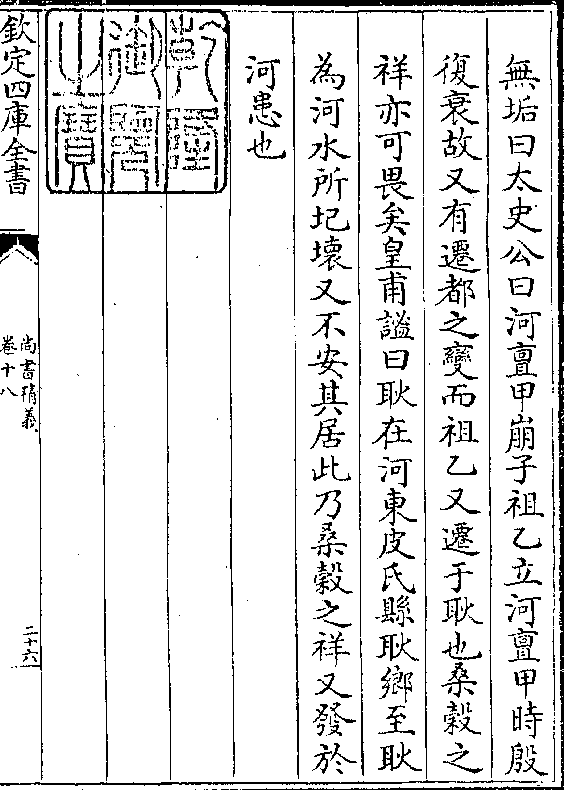 無垢曰太史公曰河亶甲崩子祖乙立河亶甲時殷
復衰故又有遷都之變而祖乙又遷于耿也桑榖之
祥亦可畏矣皇甫謐曰耿在河東皮氏縣耿鄉至耿
為河水所圮壞又不安其居此乃桑榖之祥又發於
河患也
乾隆御覽之寶
欽定四庫全書
尚書精義
卷十八
二十六